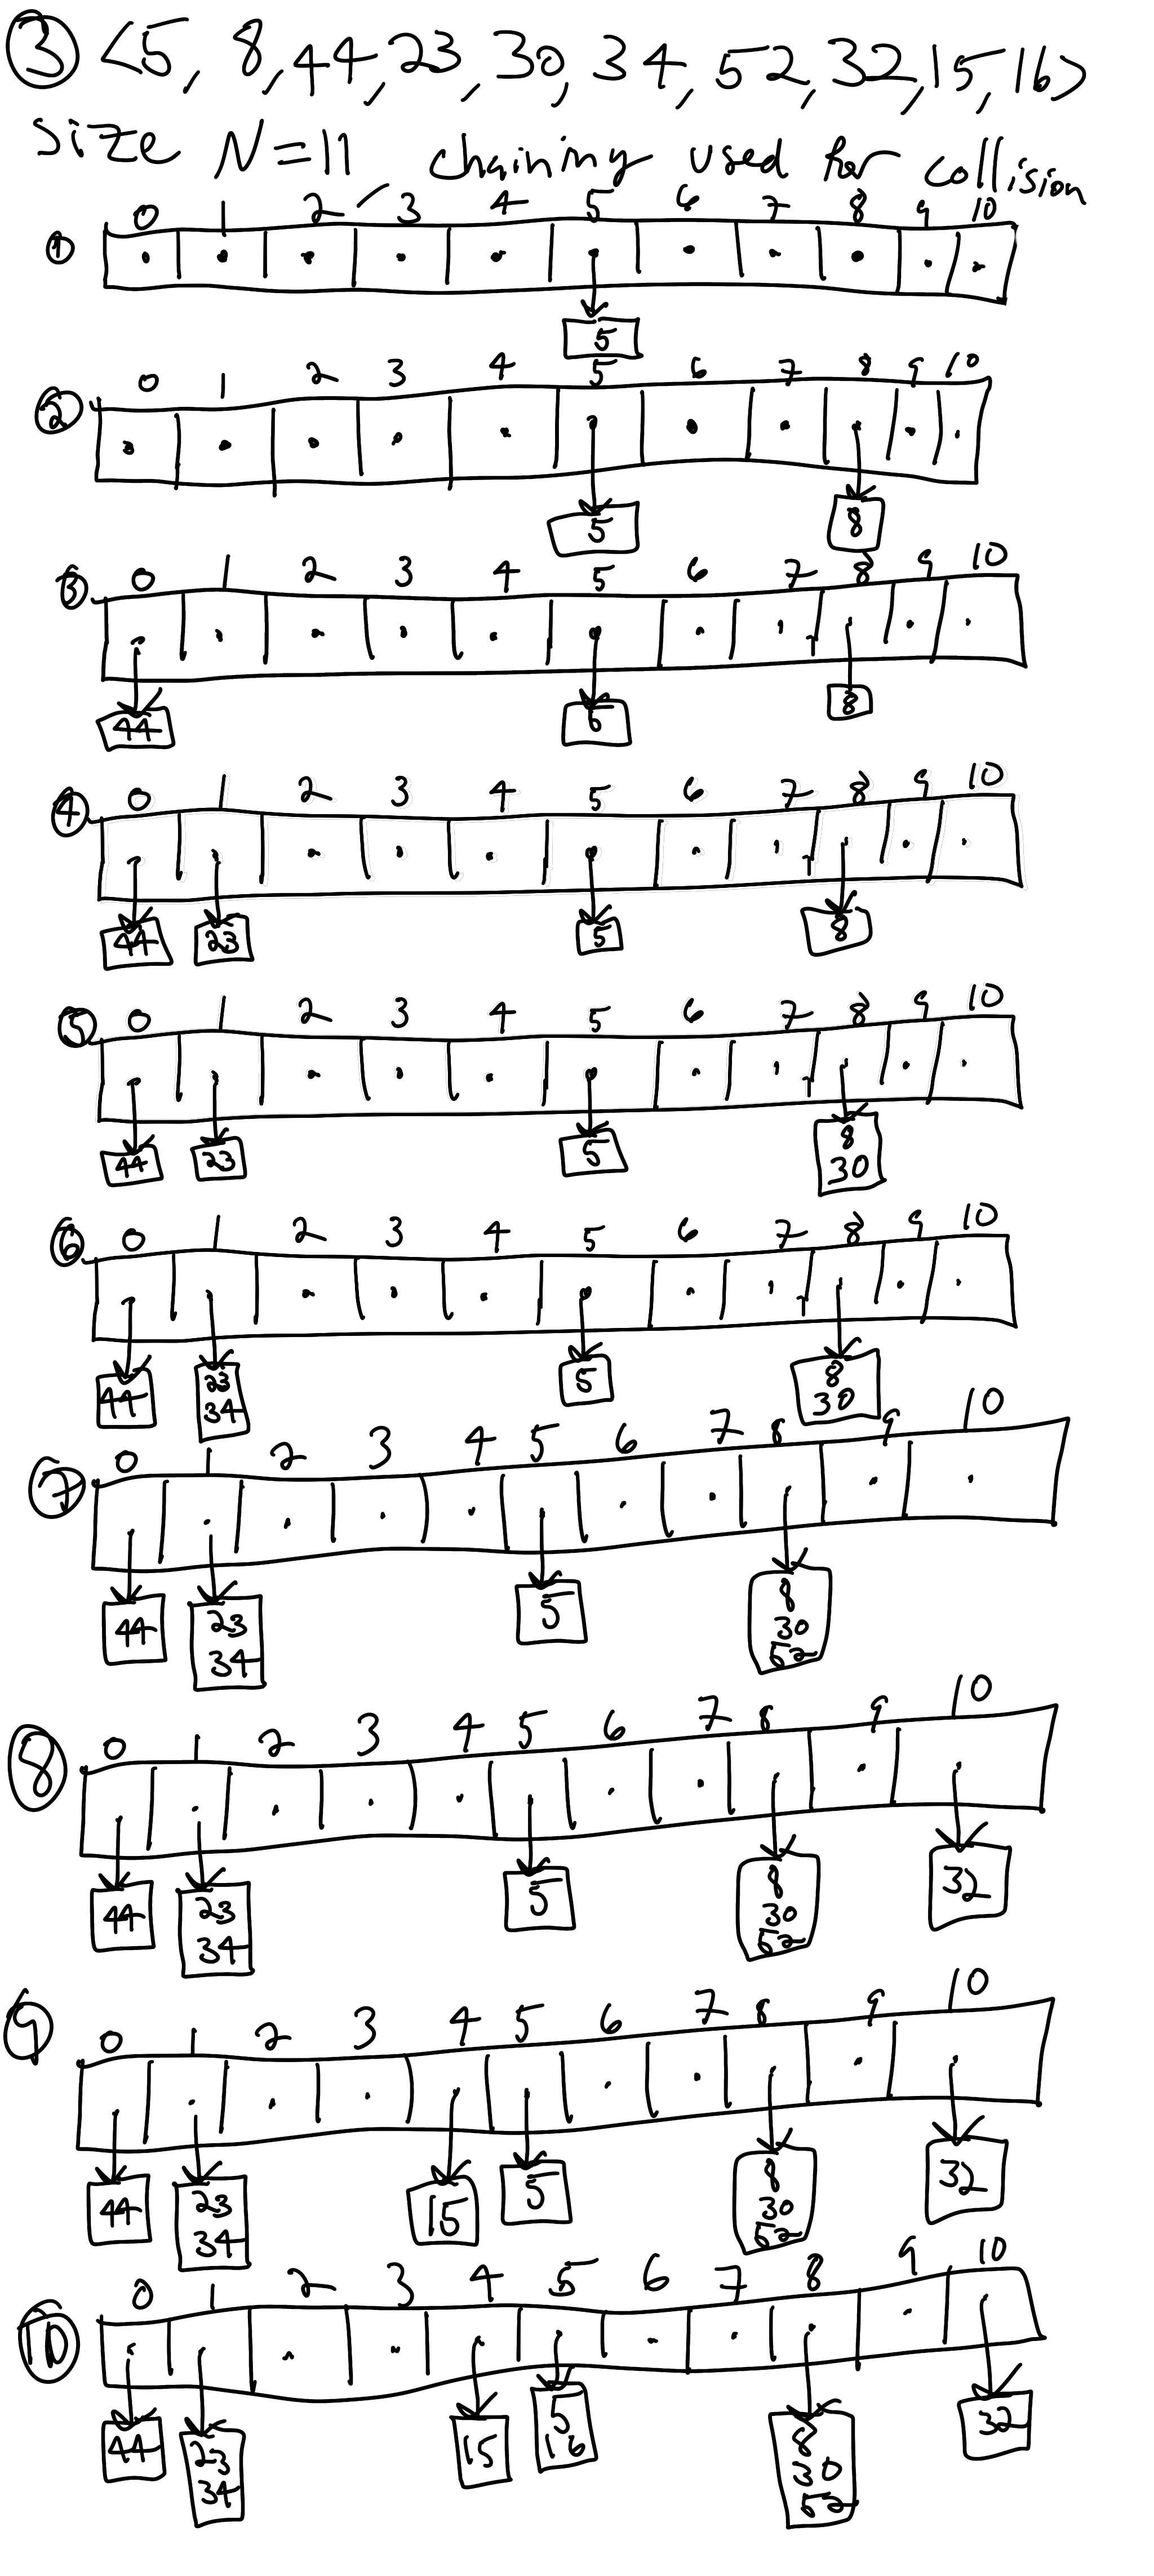 ③ <5, 8, 44, 23, 30, 34, 52, 32, 15, 16>
Size N=11 chaining used for collision
① 0 1 2 3 4 5 6 7 8 9 10
5
② 0 1 2 3 4 5 6 7 8 9 10
5 8
③ 0 1 2 3 4 5 6 7 8 9 10
44 5 8
④ 0 1 2 3 4 5 6 7 8 9 10
44 23 5 8
⑤ 0 1 2 3 4 5 6 7 8 9 10
44 23 5 8
30
⑥ 0 1 2 3 4 5 6 7 8 9 10
44 23 5 8
34 30
⑦ 0 1 2 3 4 5 6 7 8 9 10
44 23 5 8
34 30
52
⑧ 0 1 2 3 4 5 6 7 8 9 10
44 23 5 8 32
34 30
52
⑨ 0 1 2 3 4 5 6 7 8 9 10
44 23 15 5 8 32
34 30
52
⑩ 0 1 2 3 4 5 6 7 8 9 10
44 23 15 5 8 32
34 16 30
52